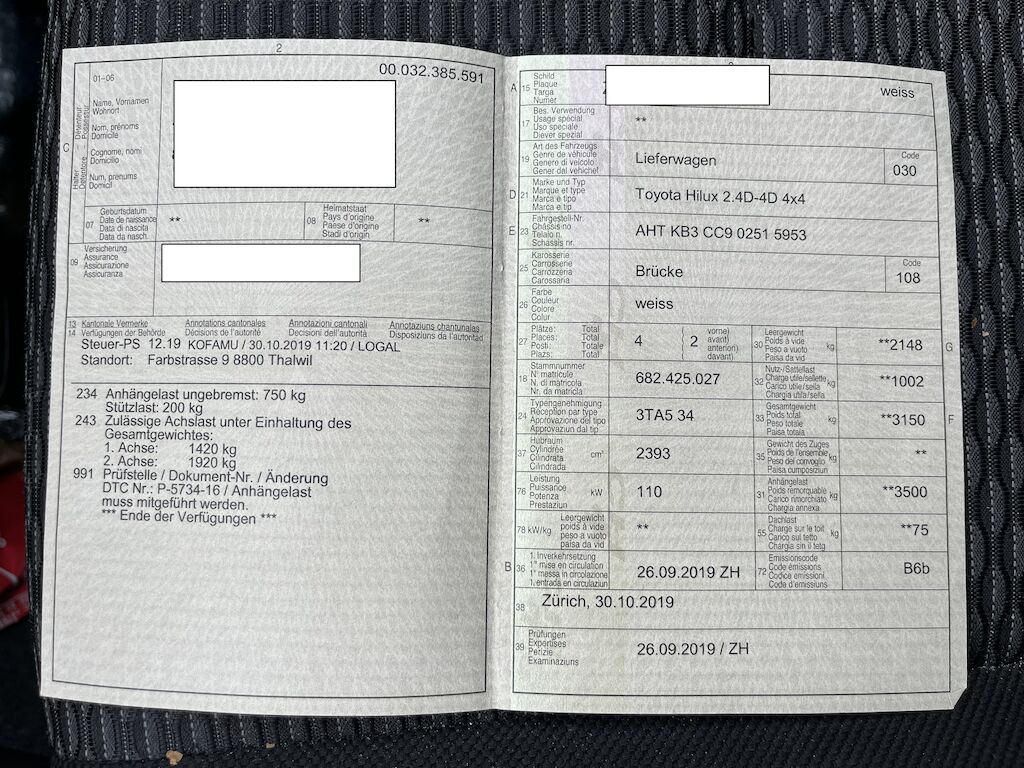 2
00.032.385.591
01–06
Name, Vornamen
Wohnort
Nom, prénoms
Domicile
Cognome, nomi
Domicilio
Num, prenums
Domicil
C
Halter – Détenteur
Detentore – Possessur
07
Geburtsdatum
Date de naissance
Data di nascita
Data da nasch.
**
08
Heimatstaat
Pays d'origine
Paese d'origine
Stadi d'origin
**
09
Versicherung
Assurance
Assicurazione
Assicuranza
13 Kantonale Vermerke Annotations cantonales Annotazioni cantonali Annotaziuns chantunalas
14 Verfügungen der Behörde Décisions de l'autorité Decisioni dell'autorità Disposiziuns da l'autoritad
Steuer-PS 12.19 KOFAMU / 30.10.2019 11:20 / LOGAL
Standort: Farbstrasse 9 8800 Thalwil
234 Anhängelast ungebremst: 750 kg
Stützlast: 200 kg
243 Zulässige Achslast unter Einhaltung des
Gesamtgewichtes:
1. Achse: 1420 kg
2. Achse: 1920 kg
991 Prüfstelle / Dokument-Nr. / Änderung
DTC Nr.: P-5734-16 / Anhängelast
muss mitgeführt werden.
*** Ende der Verfügungen ***
A 15
Schild
Plaque
Targa
Numer
weiss
17
Bes. Verwendung
Usage spécial
Uso speciale
Diever spezial
**
19
Art des Fahrzeugs
Genre de véhicule
Genere di veicolo
Gener dal vehichel
Lieferwagen
Code
030
D 21
Marke und Typ
Marque et type
Marca e tipo
Marca e tip
Toyota Hilux 2.4D-4D 4x4
E 23
Fahrgestell-Nr.
Châssis no
Telaio n.
Schassis nr.
AHT KB3 CC9 0251 5953
25
Karosserie
Carrosserie
Carrozzeria
Carossaria
Brücke
Code
108
26
Farbe
Couleur
Colore
Colur
weiss
27
Plätze: Total
Places: Total
Posti: Totale
Plazs: Total
4
2
vorne)
avant)
anteriori)
davant)
30
Leergewicht
Poids à vide
Peso a vuoto
Paisa da vid
kg
**2148
G
18
Stammnummer
N° matricule
N. di matricola
Nr. da matricla
682.425.027
32
Nutz-/Sattellast
Charge utile/sellette
Carico utile/sella
Chargia utila/sella
kg
**1002
24
Typengenehmigung
Réception par type
Approvazione del tipo
Approvaziun dal tip
3TA5 34
33
Gesamtgewicht
Poids total
Peso totale
Paisa totala
kg
**3150
F
37
Hubraum
Cylindrée
Cilindrata
Cilindrada
cm³
2393
35
Gewicht des Zuges
Poids de l'ensemble
Peso del convoglio
Paisa cumposiziun
kg
**
76
Leistung
Puissance
Potenza
Prestaziun
kW
110
31
Anhängelast
Poids remorquable
Carico rimorchiato
Chargia annexa
kg
**3500
78 kW/kg
Leergewicht
poids à vide
peso a vuoto
paisa da vid
**
55
Dachlast
Charge sur le toit
Carico sul tetto
Chargia sin il tetg
kg
**75
B 36
1. Inverkehrsetzung
1re mise en circulation
1a messa in circolazione
1. entrada en circulaziun
26.09.2019 ZH
72
Emissionscode
Code émissions
Codice emissioni
Code d'emissiuns
B6b
38
Zürich, 30.10.2019
39
Prüfungen
Expertises
Perizie
Examinaziuns
26.09.2019 / ZH